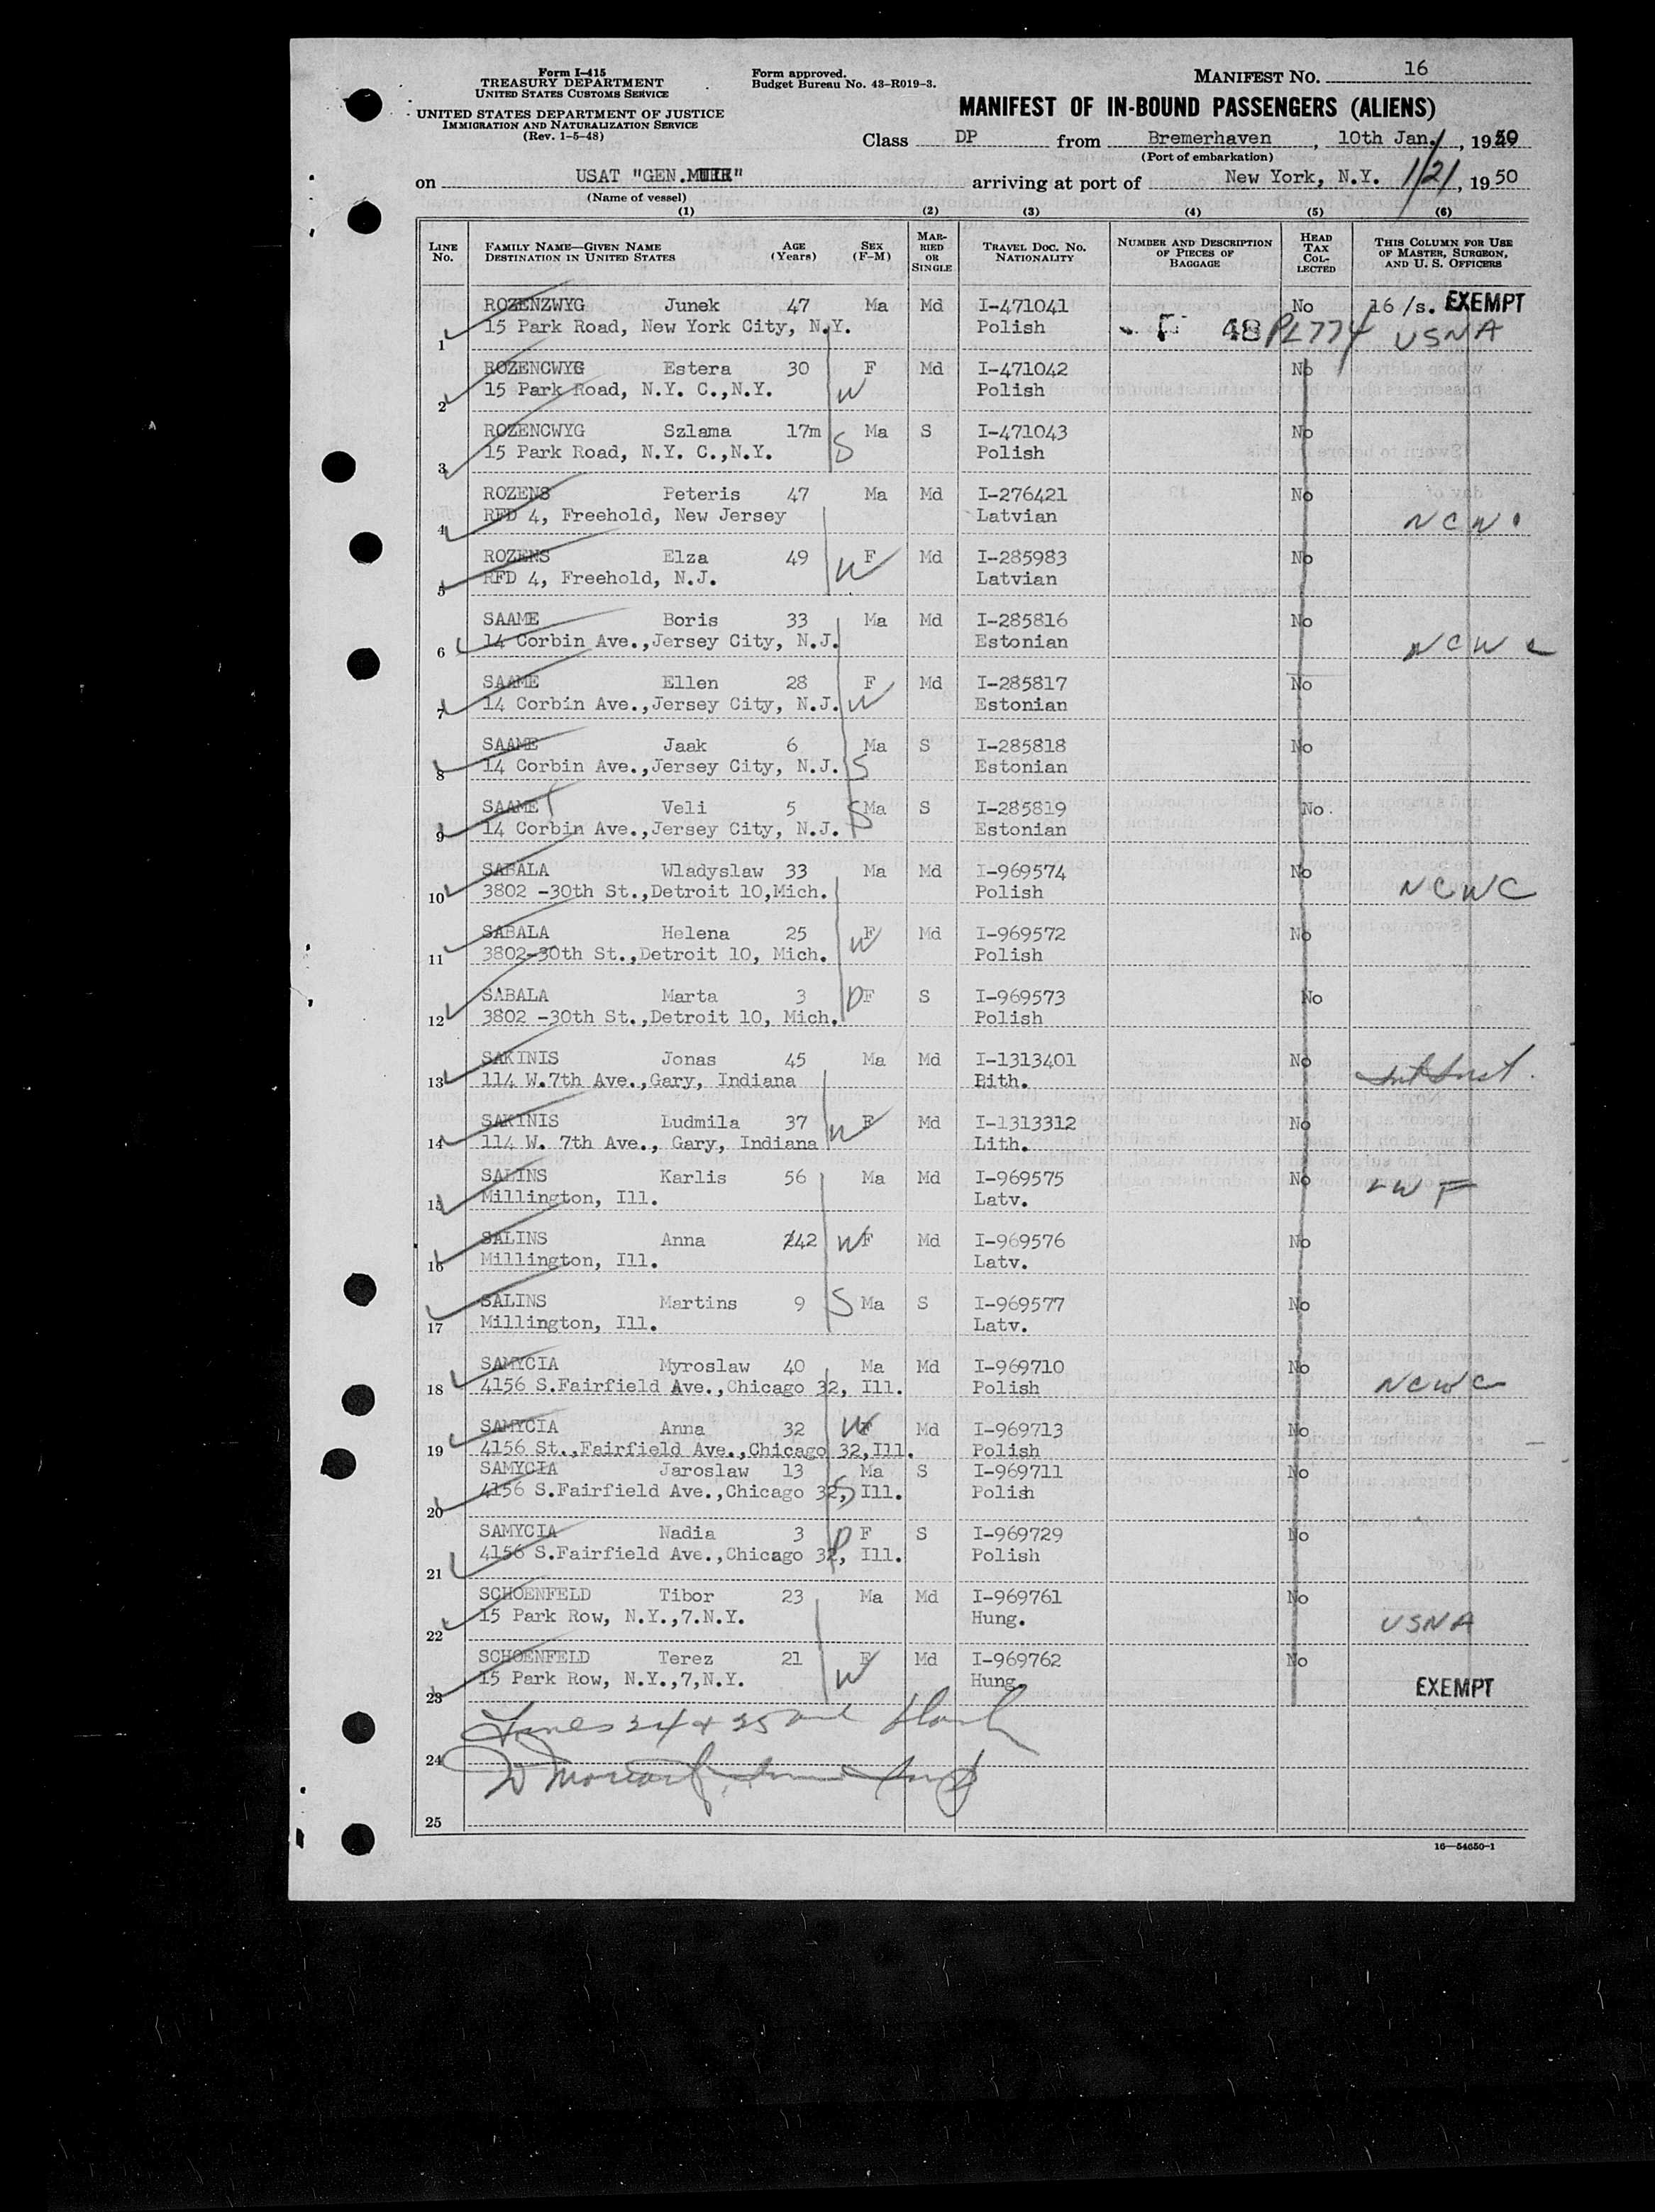 Form I-415
TREASURY DEPARTMENT
UNITED STATES CUSTOMS SERVICE
UNITED STATES DEPARTMENT OF JUSTICE
IMMIGRATION AND NATURALIZATION SERVICE
(Rev. 1-5-48)
Form approved.
Budget Bureau No. 43-R019-3.
MANIFEST NO. 16
MANIFEST OF IN-BOUND PASSENGERS (ALIENS)
Class DP from Bremerhaven, 10th Jan., 1950
(Port of embarkation)
on USAT "GEN. MUIR" arriving at port of New York, N.Y. 1/21, 1950
(Name of vessel)
(1) (2) (3) (4) (5) (6)
LINE No. FAMILY NAME—GIVEN NAME DESTINATION IN UNITED STATES AGE (Years) SEX (F-M) MARRIED OR SINGLE TRAVEL DOC. NO. NATIONALITY NUMBER AND DESCRIPTION OF PIECES OF BAGGAGE HEAD TAX COLLECTED THIS COLUMN FOR USE OF MASTER, SURGEON, AND U. S. OFFICERS
ROZENZWYG Junek 47 Ma Md I-471041 No 16/s. EXEMPT
1 15 Park Road, New York City, N.Y. Polish 48 PL774 USNA
ROZENCWYG Estera 30 F Md I-471042 No
2 15 Park Road, N.Y. C.,N.Y. W Polish
ROZENCWYG Szlama 17m Ma S I-471043 No
3 15 Park Road, N.Y. C.,N.Y. S Polish
ROZENS Peteris 47 Ma Md I-276421 No
4 RFD 4, Freehold, New Jersey Latvian NCW
ROZENS Elza 49 F Md I-285983 No
5 RFD 4, Freehold, N.J. W Latvian
SAAME Boris 33 Ma Md I-285816 No
6 14 Corbin Ave.,Jersey City, N.J. Estonian NCWC
SAAME Ellen 28 F Md I-285817 No
7 14 Corbin Ave.,Jersey City, N.J. W Estonian
SAAME Jaak 6 Ma S I-285818 No
8 14 Corbin Ave.,Jersey City, N.J. S Estonian
SAAME Veli 5 S Ma S I-285819 No
9 14 Corbin Ave.,Jersey City, N.J. Estonian
SABALA Wladyslaw 33 Ma Md I-969574 No
10 3802 -30th St.,Detroit 10,Mich. Polish NCWC
SABALA Helena 25 W F Md I-969572 No
11 3802-30th St.,Detroit 10, Mich. Polish
SABALA Marta 3 D F S I-969573 No
12 3802 -30th St.,Detroit 10, Mich. Polish
SAKINIS Jonas 45 Ma Md I-1313401 No
13 114 W.7th Ave.,Gary, Indiana Bith.
SAKINIS Ludmila 37 F Md I-1313312 No
14 114 W. 7th Ave., Gary, Indiana W Lith.
SALINS Karlis 56 Ma Md I-969575 No LWF
15 Millington, Ill. Latv.
SALINS Anna 42 W F Md I-969576 No
16 Millington, Ill. Latv.
SALINS Martins 9 S Ma S I-969577 No
17 Millington, Ill. Latv.
SAMYCIA Myroslaw 40 Ma Md I-969710 No
18 4156 S.Fairfield Ave.,Chicago 32, Ill. Polish NCWC
SAMYCIA Anna 32 W F Md I-969713 No
19 4156 St.,Fairfield Ave.,Chicago 32,Ill. Polish
SAMYCIA Jaroslaw 13 Ma S I-969711 No
20 4156 S.Fairfield Ave.,Chicago 32, Ill. S Polish
SAMYCIA Nadia 3 D F S I-969729 No
21 4156 S.Fairfield Ave.,Chicago 32, Ill. Polish
SCHOENFELD Tibor 23 Ma Md I-969761 No
22 15 Park Row, N.Y.,7.N.Y. Hung. USNA
SCHOENFELD Terez 21 F Md I-969762 No
23 15 Park Row, N.Y.,7,N.Y. W Hung. EXEMPT
Lines 24 & 25 are blank
24
25
16—54650-1